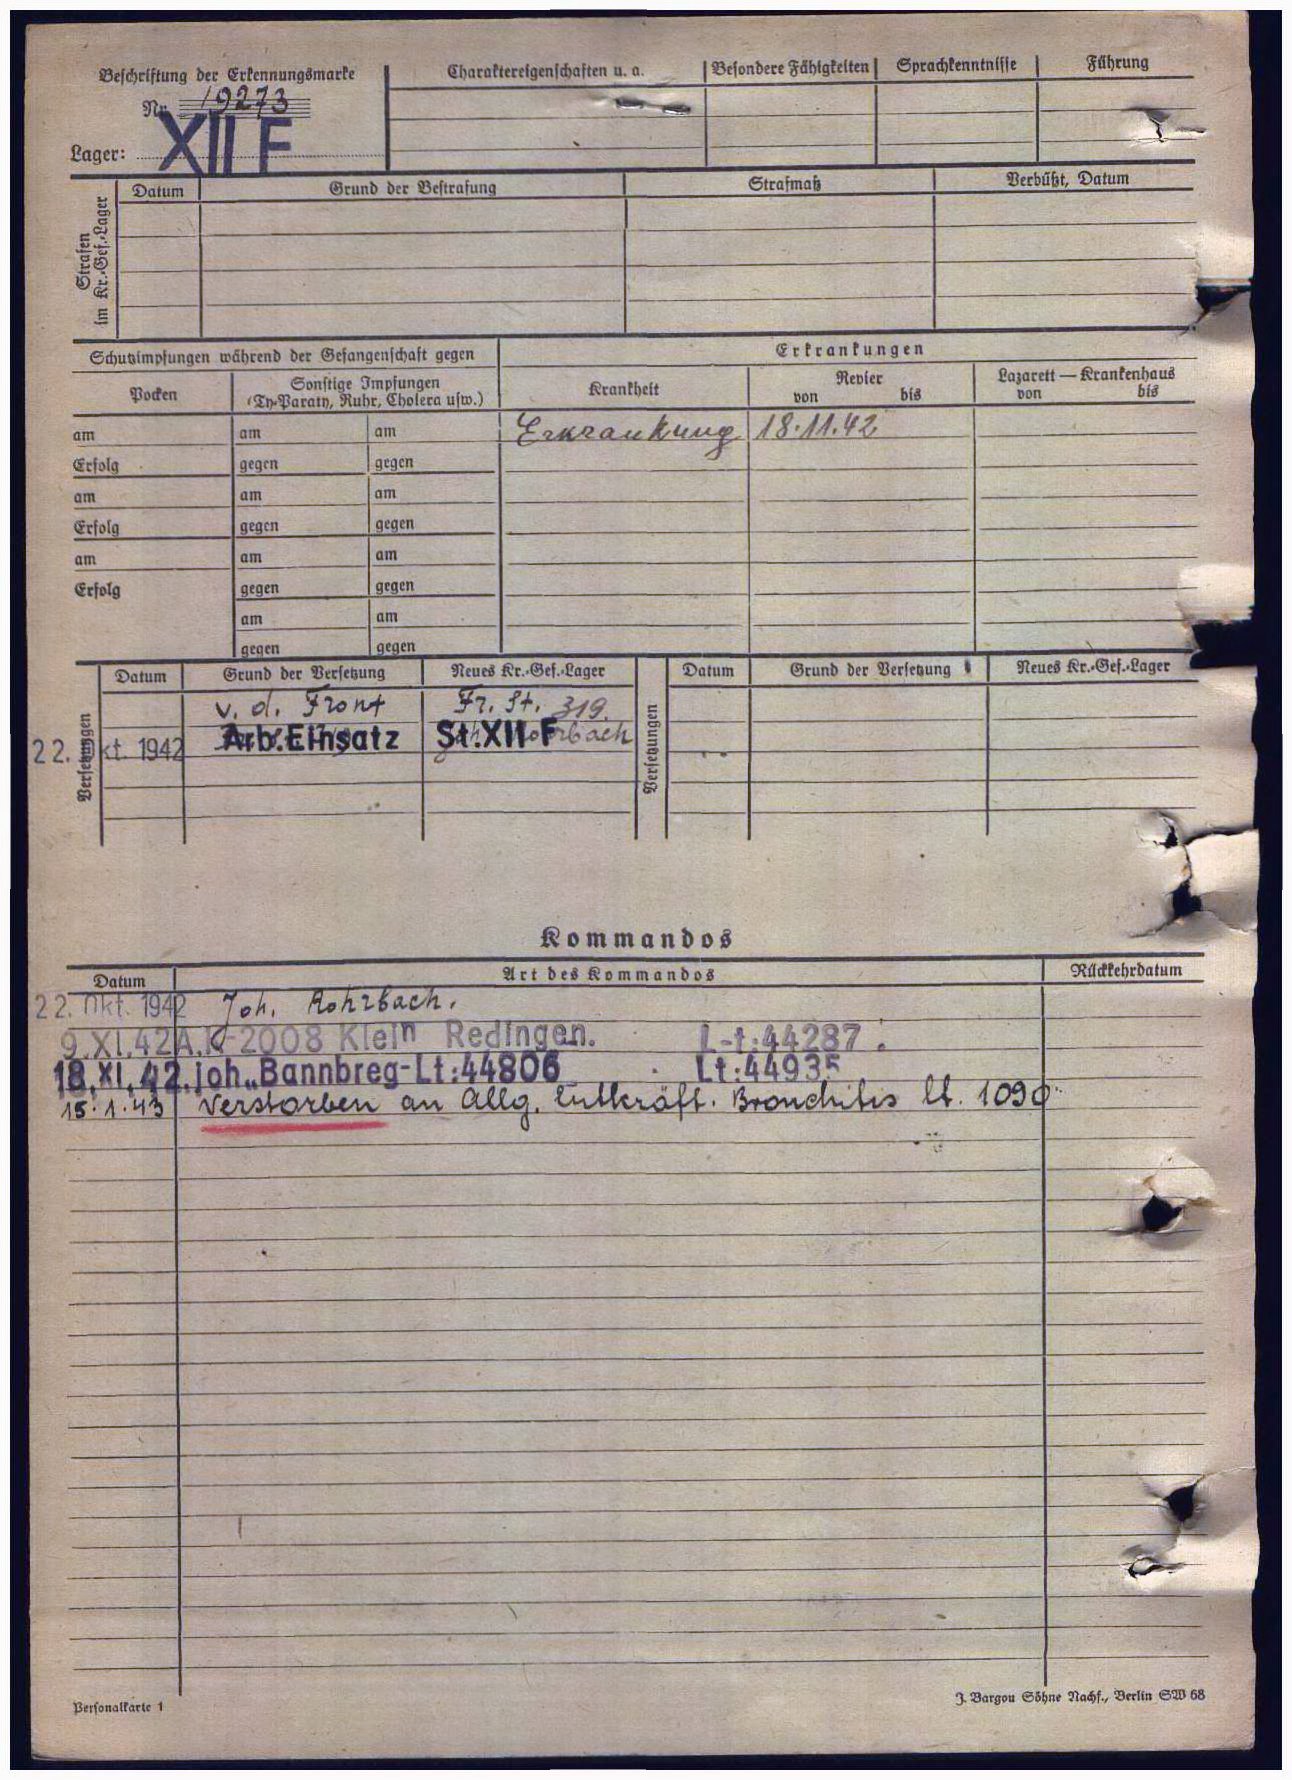 Beschriftung der Erkennungsmarke
Nr. 19273
Lager: XII F
Charaktereigenschaften u. a.
Besondere Fähigkeiten
Sprachkenntnisse
Führung
Strafen im Kr.-Gef.-Lager
Datum
Grund der Bestrafung
Strafmaß
Verbüßt, Datum
Schutzimpfungen während der Gefangenschaft gegen
Erkrankungen
Pocken
Sonstige Impfungen
(Ty-Paraty, Ruhr, Cholera usw.)
Krankheit
Revier
von bis
Lazarett — Krankenhaus
von bis
am am am Erkrankung 18.11.42
Erfolg gegen gegen
am am am
Erfolg gegen gegen
am am am
Erfolg gegen gegen
am am
gegen gegen
Versetzungen
Datum Grund der Versetzung Neues Kr.-Gef.-Lager
v. d. Front Fr. St. 319.
22. Okt. 1942 Arb.Einsatz St.XII F
Versetzungen
Datum Grund der Versetzung Neues Kr.-Gef.-Lager
Kommandos
Datum Art des Kommandos Rückkehrdatum
22. Okt. 1942 Joh. Rohrbach.
9.XI.42 A.K-2008 Klein Redingen. L-t:44287.
18.XI.42. Joh„Bannbreg-Lt:44806 Lt:44935
15.1.43 Verstorben an Allg. Entkräft. Bronchitis lt. 1090
Personalkarte 1
J. Bargou Söhne Nachf., Berlin SW 68